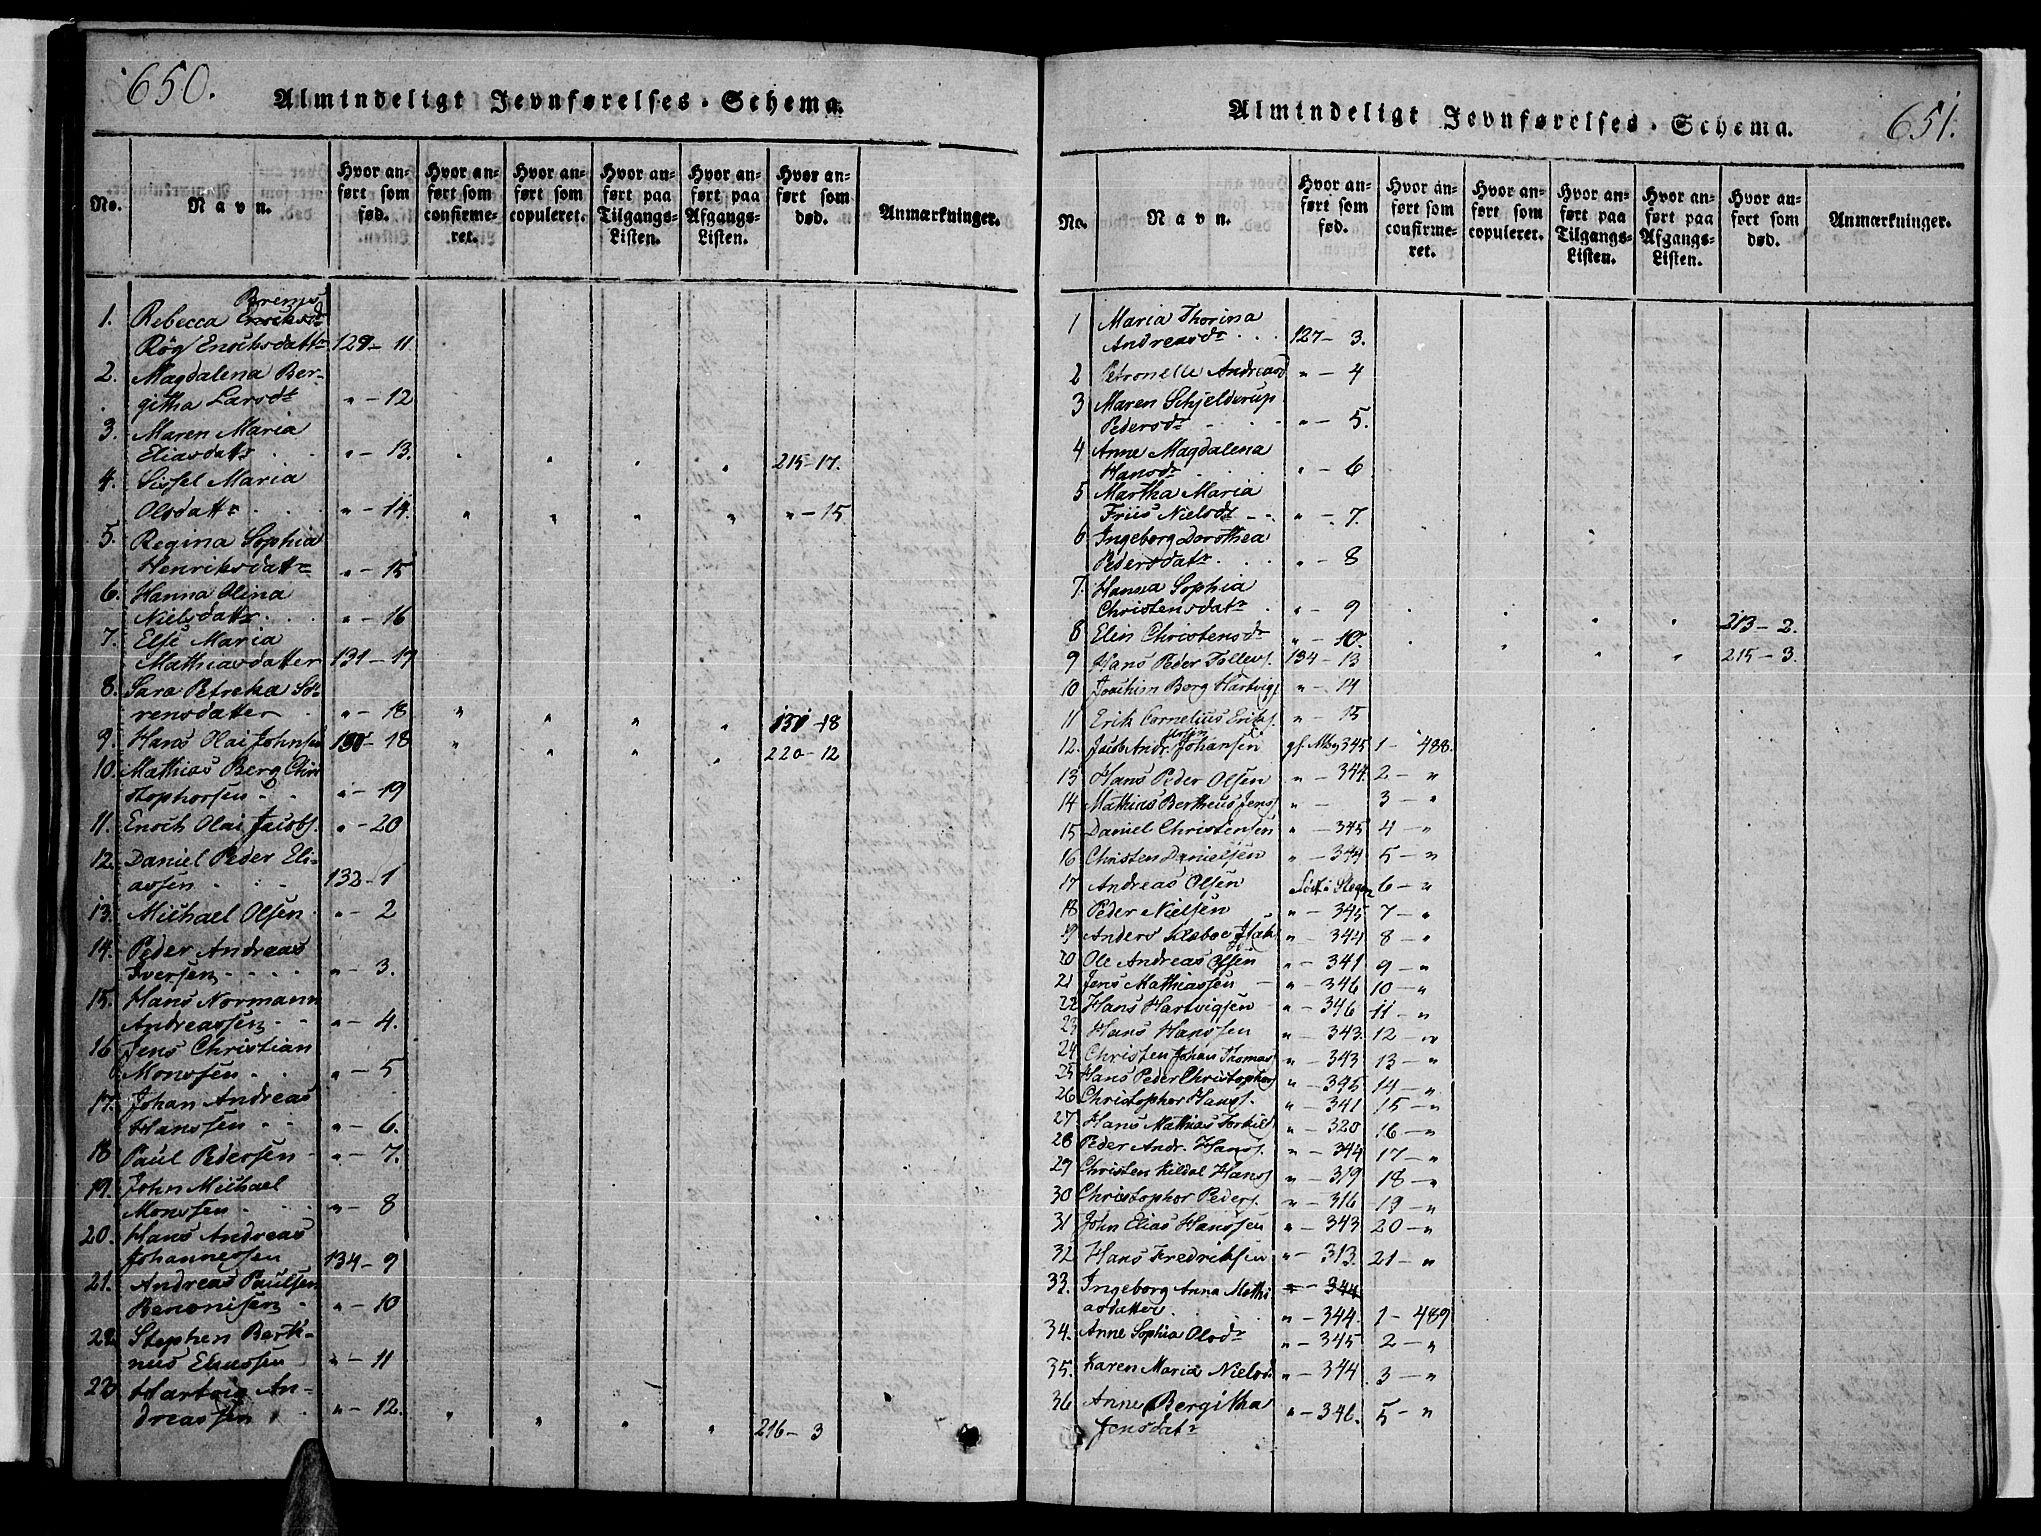 650.
Almindeligt Jevnførelses-Schema.
No.
Navn.
Hvor anført som fød.
Hvor anført som confirmeret.
Hvor anført som copuleret.
Hvor anført paa Tilgangs-Listen.
Hvor anført paa Afgangs-Listen.
Hvor anført som død.
Anmærkninger.
Brems
1. Rebecca
Røg Enochsdattr 129 - 11.
2. Magdalena Ber-
githa Larsdr " - 12
3. Maren Maria
Eliasdattr " - 13. " " " " 215 - 17.
4. Sissel Maria
Olsdattr " - 14. " " " " " - 15
5. Regina Sophia
Henriksdattr " - 15
6. Hanna Olina
Nielsdattr " - 16
7. Else Maria
Mathiasdatter 131 - 17
8. Sara Petrekka Sø-
rensdatter " - 18 " " " " 131 - 18
9. Hans Olai Johnsen 130 - 18 " " " " 220 - 12
10. Mathias Berg Chri
stophersen " - 19
11. Enoch Olai Jacobs. " - 20
12. Daniel Peder Eli-
assen 132 - 1
13. Michael Olsen " - 2
14. Peder Andreas
Iversen " - 3.
15. Hans Normann
Andreassen " - 4.
16 Jens Christian
Monssen " - 5
17. Johan Andreas
Hanssen " - 6.
18 Paul Pedersen " - 7.
19. John Michael
Monssen " - 8
20. Hans Andreas
Johannessen 134 - 9
21. Andreas Paulsen
Benonisen " - 10
22. Stephen Berth-
nus Eliassen " - 11
23 Hartvig An-
dreassen " - 12. " " " " 216 - 3
Almindeligt Jevnførelses-Schema.
651.
No.
Navn.
Hvor anført som fød.
Hvor anført som confirmeret.
Hvor anført som copuleret.
Hvor anført paa Tilgangs-Listen.
Hvor anført paa Afgangs-Listen.
Hvor anført som død.
Anmærkninger.
1 Maria Thorina
Andreasdr 127 - 3.
2 Petronelle Andreasd " - 4
3 Maren Schjelderup
Pedersdr " - 5.
4 Anne Magdalena
Hansdr " - 6
5 Martha Maria
Friis Nielsdr " - 7.
6 Ingeborg Dorothea
Pedersdatr " - 8
7. Hanna Sophia
Christensdatr " - 9 " " " " 213 - 2.
8 Elin Christensdr " - 10. " " " " 215 - 3.
9 Hans Peder Tollevs. 134 - 13
10 Joachim Borg Hartvigs " - 14
11 Erik Cornelius Eriks. " - 15
12. Jacob Andr. Johansen 345 1 - 488.
13 Hans Peder Olsen " - 344. 2 - "
14 Mathias Bertheus Jenss " - 3 - "
15 Daniel Christensen " - 345 4 - "
16 Christen Danielsen " - 344 5 - "
17 Andreas Olsen Född i Stegen 6 - "
18 Peder Nielsen " - 345 7 - "
19 Anders Klæboe Isak. " - 344 8 - "
20 Ole Andreas Olsen " - 341 9 - "
21 Jens Mathiassen " - 346 10 - "
22 Hans Hartvigsen " - 346 11 - "
23 Hans Hanssen " - 343. 12 - "
24 Christen Johan Thomas. " - 343 13 - "
25 Hans Peder Christophers " - 345 14 - "
26 Christopher Hanss. " - 341 15 - "
27. Hans Mathias Torkild " - 320 16 - "
28 Peder Andr. Hanss. " - 344 17 - "
29 Christen Kildal Hanss " - 319 18 - "
30 Christopher Peders. " - 316 19 - "
31 John Elias Hanssen " - 343 20 - "
32 Hans Fredriksen " - 313. 21 - "
33. Ingeborg Anna Mathi " - 344
asdatter " - 344. 1 - 489.
34. Anne Sophia Olsdr " - 345 2 - "
35. Karen Maria Nielsd. " - 344 3 - "
36 Anne Bergitha " - 346. 5 - "
Jensdatr